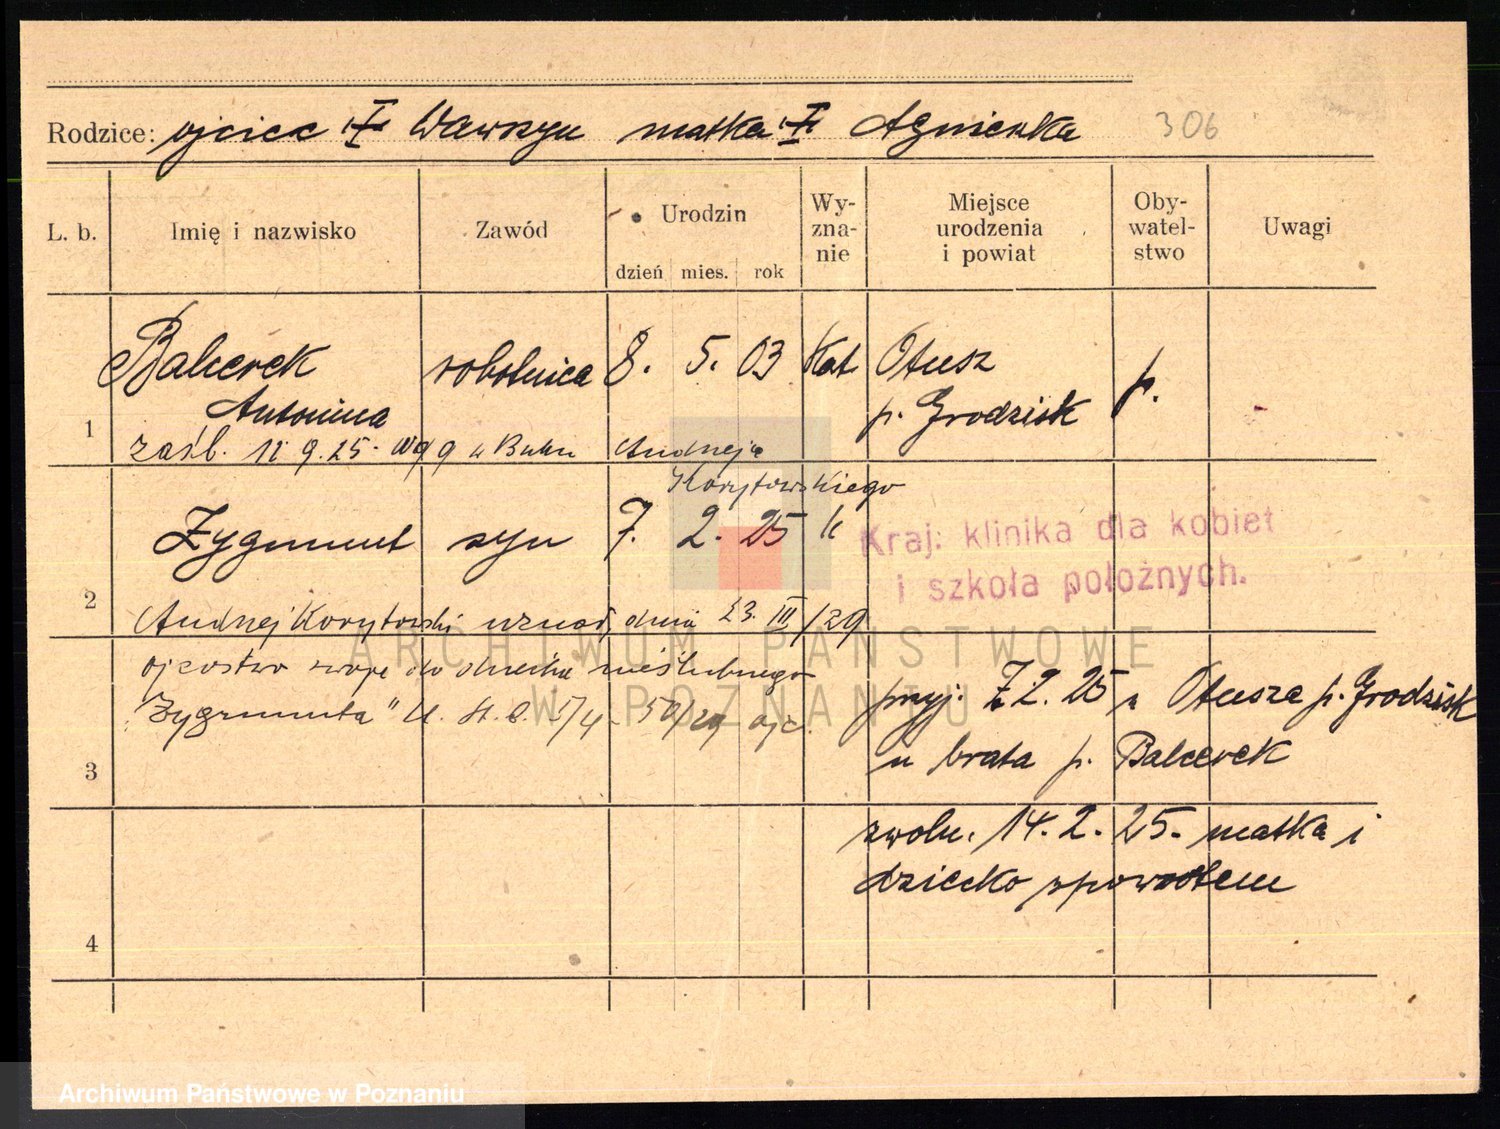 Rodzice: ojciec "I" Wawrzyn matka "I" Agnieszka 306
L. b. Imię i nazwisko Zawód Urodzin dzień mies. rok Wy- zna- nie Miejsce urodzenia i powiat Oby- watel- stwo Uwagi
Balcerek robotnica 8. 5. 03 Kat Otusz
Antonina p. Grodzisk p.
1 zaśl. 12 9.25. w Buku Andrzeja
Korytowskiego
Zygmunt syn 7. 2. 25 k Kraj. klinika dla kobiet
2 i szkoła położnych.
Andrzej Korytowski uznał dnia 23. III/29
ojcostwo swoje do dziecka nieślubnego
"Zygmunta" U. St. C. 50/29
przyj. 7.2.25 z Otusza p. Grodzisk
3 u brata p. Balcerek
zwoln. 14.2.25. matka i
dziecko zpowrotem
4
ARCHIWUM PAŃSTWOWE
W POZNANIU
Archiwum Państwowe w Poznaniu